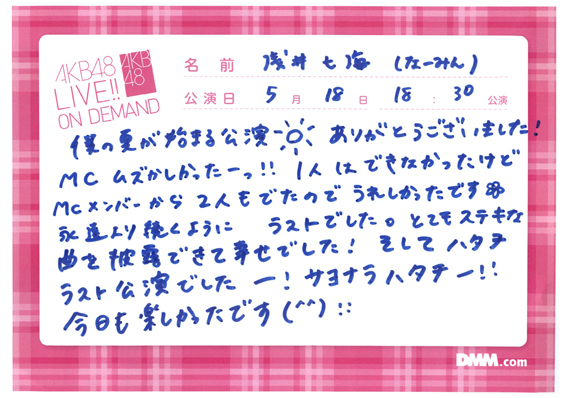 AKB48
LIVE!!
ON DEMAND
AKB
48
名前 浅井七海 (なーみん)
公演日 5月18日 18:30公演
僕の夏が始まる公演 ありがとうございました!
MC ムズかしかったーっ!! 1人はできなかったけど
MCメンバーから2人もでたので うれしかったです
永遠より続くように ラストでした。とてもステキな
曲を披露できて幸せでした! そしてハタチ
ラスト公演でしたー! サヨナラハタチー!!
今日も楽しかったです(^^)!!
DMM.com